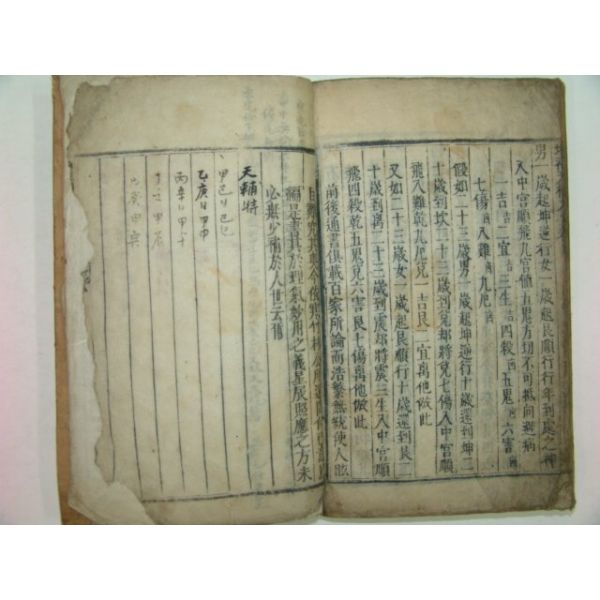 男一歲起坤逆行女一歲起艮順行行年到處之神
入中宮順飛九宮値五鬼方切不可抵向避病
一吉吉二宜吉三生吉四殺凶五鬼凶六害凶
七傷凶八難凶九厄凶
假如二十三歲男一歲起坤逆行十歲逆到坤二
十歲到坎二十三歲到兌却將兌七傷入中宮順
飛八難乾九厄兌一吉艮二宜离他倣此
又如二十三歲女一歲起艮順行十歲逆到艮二
十歲到离二十三歲到震却將震三生入中宮順
飛四殺乾五鬼兌六害艮七傷离他倣此
前後通書俱載百家所論而浩繁無統使人眩
編是書其於理氣妙用之義星辰照應之方未
必無少補於人世云爾
天輔時
甲己日己巳
乙庚日甲申